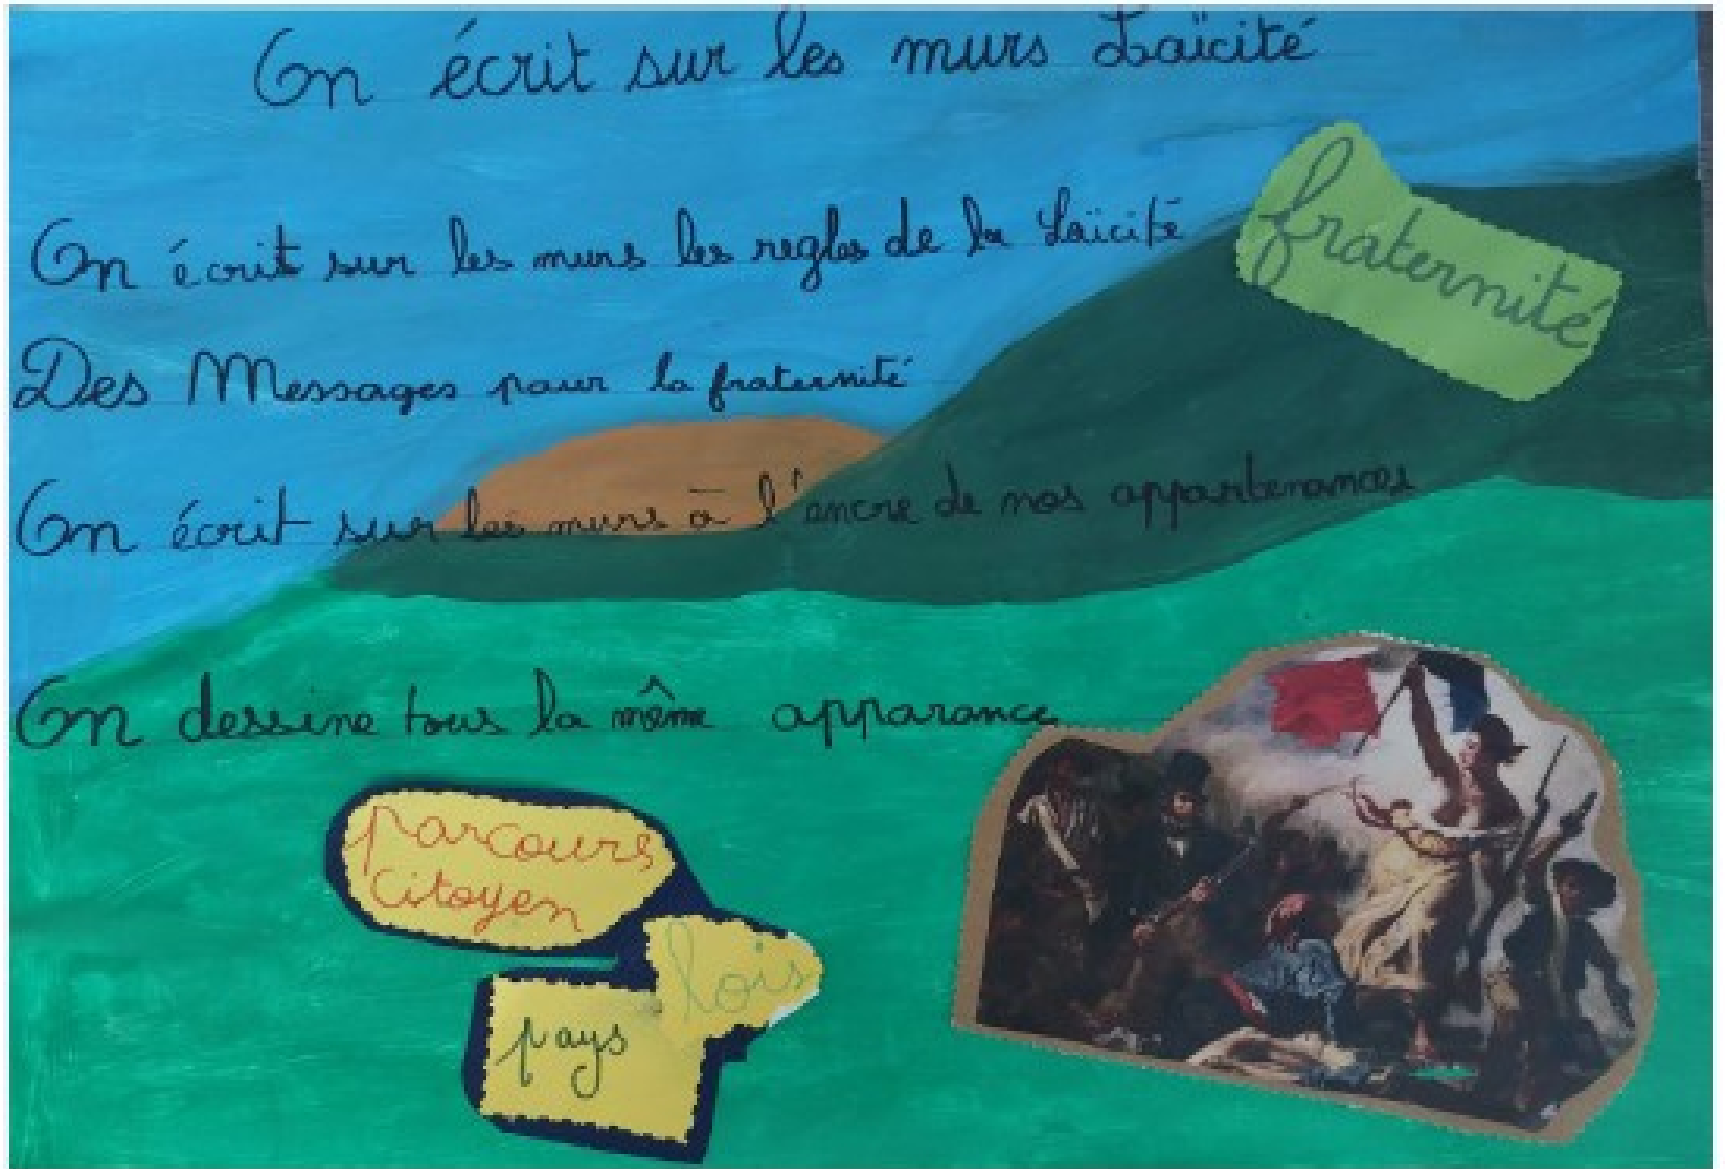 On écrit sur les murs Laïcité
On écrit sur les murs les regles de la Laïcité
fraternité
Des Messages pour la fraternité
On écrit sur les murs à l'ancre de nos appartenances
On dessine tous la même apparance
parcours
citoyen
lois
pays